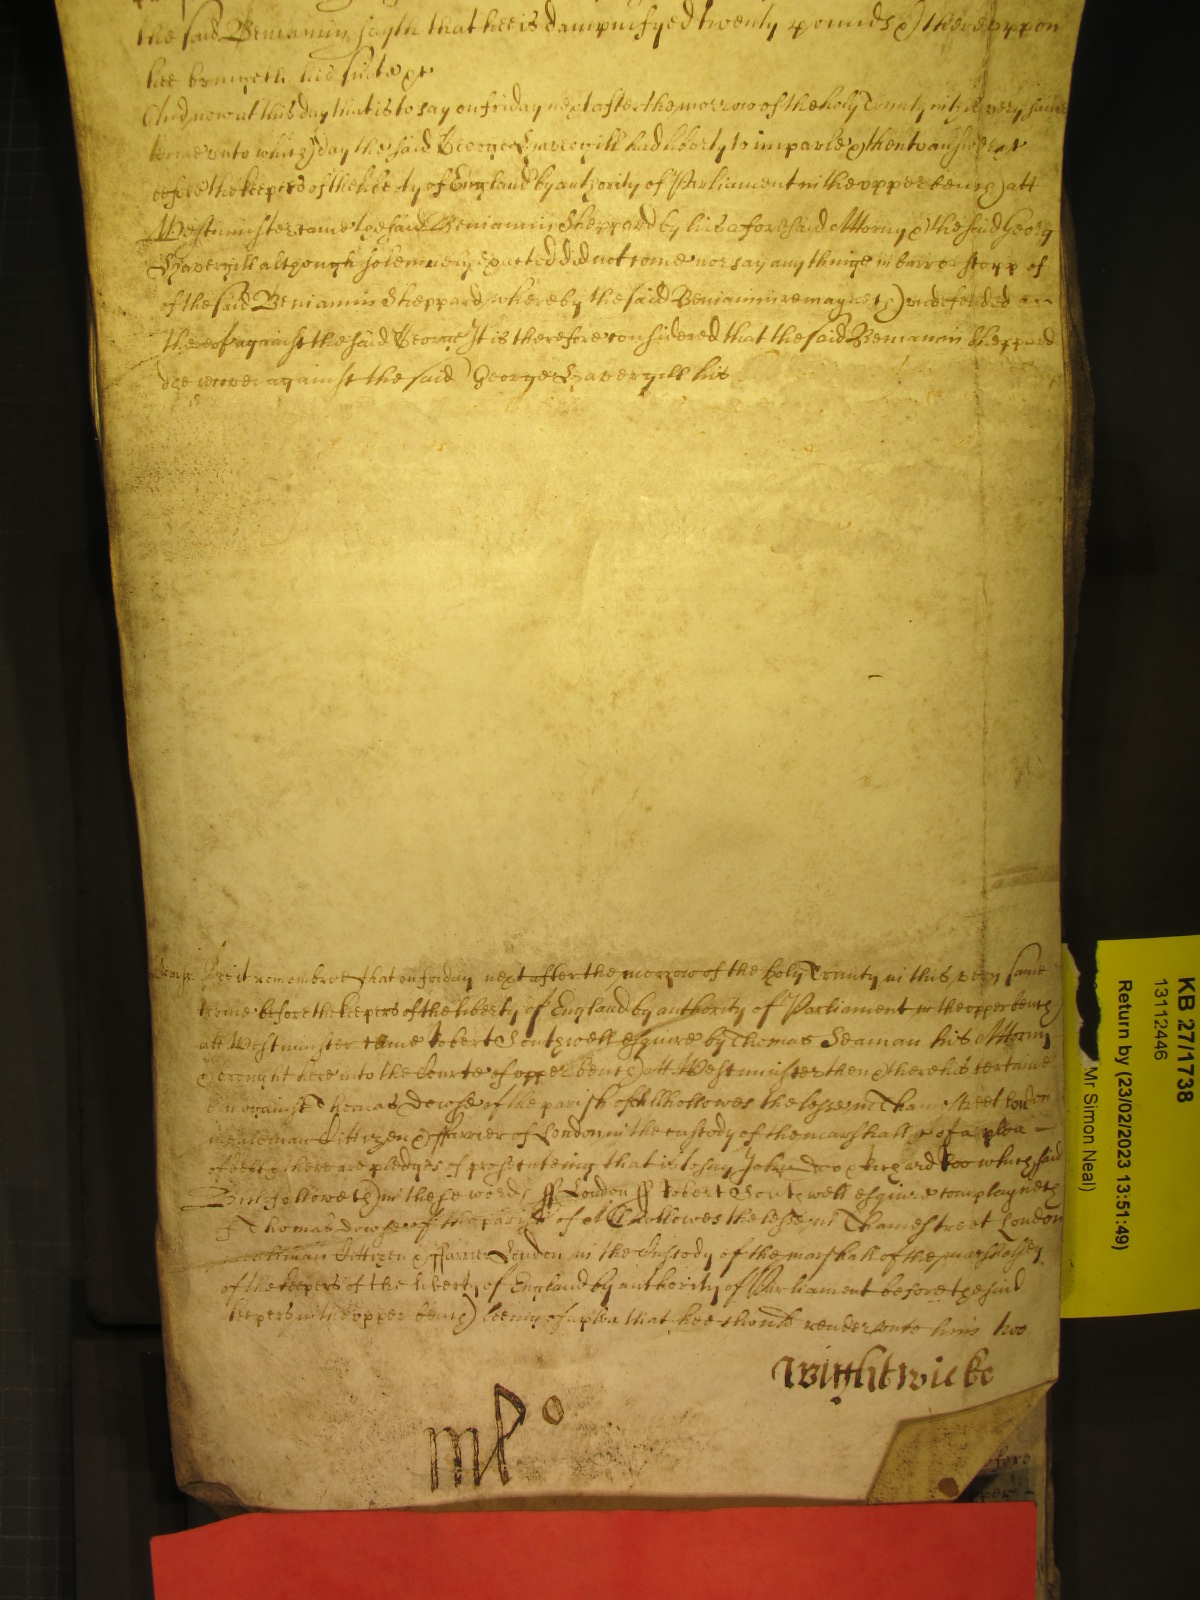 the said Beniamin sayth that hee is dampnifyed twenty pounds & thereuppon
hee bringeth his suite &c
And now at this day that is to say on friday next after the morrow of the holy Trinity in this very same
terme unto which day the said George Havergill had liberty to imparle & then to answere &c
before the keepers of the liberty of England by authority of Parliament in the upper bench att
Westminster came the said Beniamin Sheppard by his aforesaid Attorny & the said George
Havergill although solemnely exacted did not come nor say any thinge in barr or stopp of
of the said Beniamin Sheppard whereby the said Beniamin remayneth undefended
thereof against the said George It is therefore considered that the said Beniamin Sheppard
doe recover against the said George Havergill his
London ss. Bee it remembred that on friday next after the morrow of the holy Trinity in this very same
terme before the keepers of the liberty of England by authority of Parliament in the upper bench
att Westminster came Robert Southwell esquire by Thomas Seaman his Attorny
& brought here into the Courte of upper bench att Westminster then & there his certaine
bill against Thomas Dowse of the parish of Allhollowes the lesse in Thamestreet London
mealeman Cittizen & ffarrier of London in the custody of the marshall &c of a plea
of debt & there are pledges of prosecuteing that is to say John Doo & Richard Roo which said
Bill followeth in these words ss London ss Robert Southwell esquire complayneth
of Thomas Dowse of the parish of All Hollowes the lesse in Thamestreet London
mealeman Cittizen & ffarrier London in the Custody of the marshall of the marshalsey
of the keepers of the liberty of England by authority of Parliament before the said
keepers in the upper bench beeing of a plea that hee should render unto him two
Wightwicke
KB 27/1738
13112446
Return by (23/02/2023 13:51:49)
Mr Simon Neal)